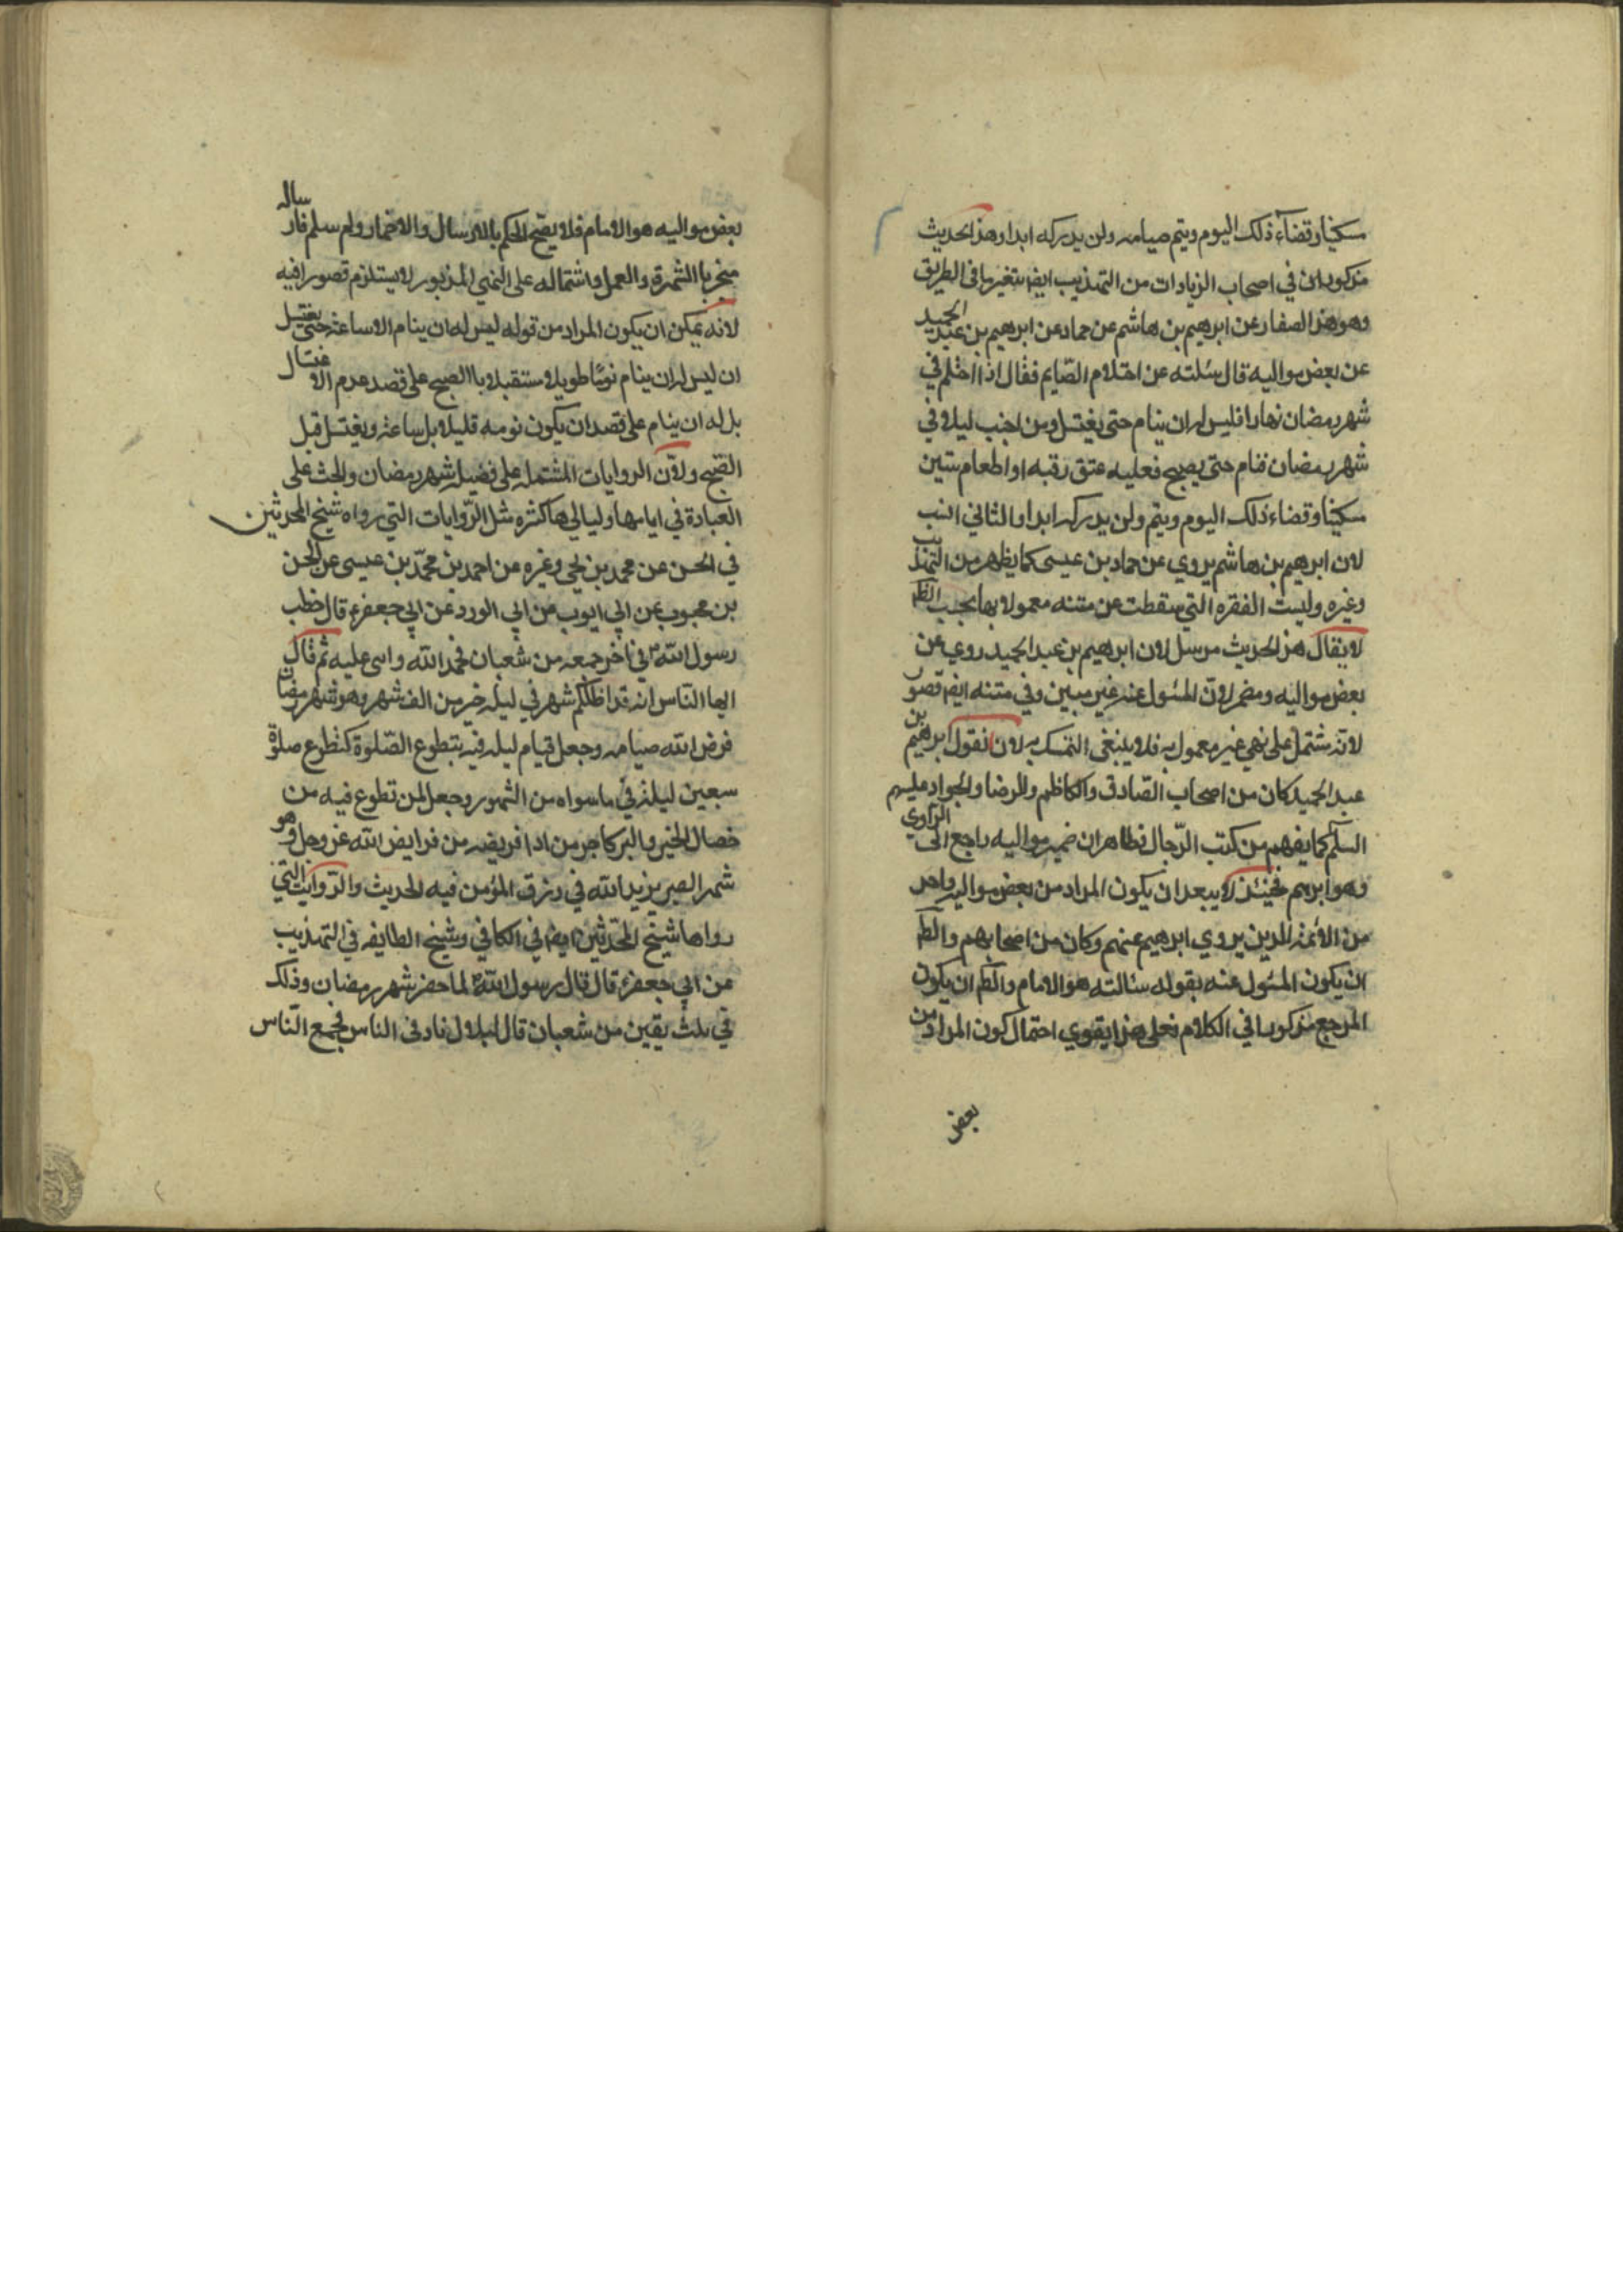 سكينا وقضاء ذلك اليوم ويتم صيامه ولن يدركه ابدا وهذا لحديث
مذكوران في اصحاب الزيادات من التهذيب ايضا بتغير ما في الطريق
وهو هذا الصفار عن ابرهيم بن هاشم عن حماد عن ابرهيم بن عبد الحميد
عن بعض مواليه قال سئلته عن احتلام الصّايم فقال اذا احتلم في
شهر رمضان نهارا فليس له ان ينام حتى يغتسل ومن اجنب ليلا في
شهر رمضان فنام حتى يصبح فعليه عتق رقبه او اطعام ستين
سكينا وقضاء ذلك اليوم ويتم ولن يدركه ابدا والثاني انسب
لان ابرهيم بن هاشم يروي عن حماد بن عيسى كما يظهر من التهذيب
وغيره وليست الفقره التي سقطت عن متنه معمولا بها بحسب الظم
لا يقال هذا لحديث مرسل لان ابرهيم بن عبد الحميد روي عن
بعض مواليه ومضمر لانّ المسئول عنه غير مبين وفي متنه ايضا قصور
لانّه مشتمل على نهي غير معمول به فلا ينبغي التمسك به لان نقول ابرهيم بن
عبد الحميد كان من اصحاب الصادق والكاظم والرضا والجواد عليهم
السلّم كما يفهم من كتب الرّجال فظاهر ان ضمير مواليه راجع الى الراوي
وهو ابرهيم فحينئذ لا يبعد ان يكون المراد من بعض مواليه واحد
من الائمّه الذين يروي ابرهيم عنهم وكان من اصحابهم والظم
ان يكون المسئول عنه بقوله سئالته هو الامام والظم ان يكون
المرجع مذكورا في الكلام فعلى هذا يقوي احتمال كون المراد من
بعض
بعض مواليه هو الامام فلا يصح الحكم بالارسال والاضمار ولم سلم فارساله
منجر باالشهرة والعمل واشتماله على النهي المذبور لا يستلزم قصورا فيه
لانه يمكن ان يكون المراد من قوله ليس له ان ينام الا ساعة حتى يغتسل
ان ليس له ان ينام نومًا طويلا مستقبلا باالصبح على قصد عدم الاغتسال
بل له ان ينام على قصد ان يكون نومه قليلا بل ساعة ويغتسل قبل
الصبح ولانّ الروايات المشتمله على فضيله شهر رمضان والحث على
العبادة في ايامها ولياليها كثره مثل الرّوايات التي رواه شيخ المحدثين
في الحسن عن محمد بن يحي وغيره عن احمد بن محمّد بن عيسى عن الحسن
بن محبوب عن ابي ايوب عن ابي الورد عن ابي جعفر ع قال خطب
رسول الله ص في اخر جمعه من شعبان فحمد الله واسى عليه ثم قال
ايها النّاس انه قد اظلكم شهر في ليله خير من الف شهر وهو شهر رمضان
فرض الله صيامه وجعل قيام ليله فيه بتطوع الصّلوة كتطوع صلوة
سبعين ليلة في ما سواه من الشهور وجعل لمن تطوع فيه من
خصال الخير والبر كاجر من ادا فريضه من فرايض الله عز وجل وهو
شهر الصبر يزيد الله في رزق المؤمن فيه لحديث والرّوايت التي
رواها شيخ المحدّثين ايضا في الكافي وشيخ الطايفه في التهذيب
عن ابي جعفر ع قال قال رسول الله ص لما حضر شهر رمضان وذلك
في ثلث يقين من شعبان قال لبلال ناد في الناس فجمع النّاس